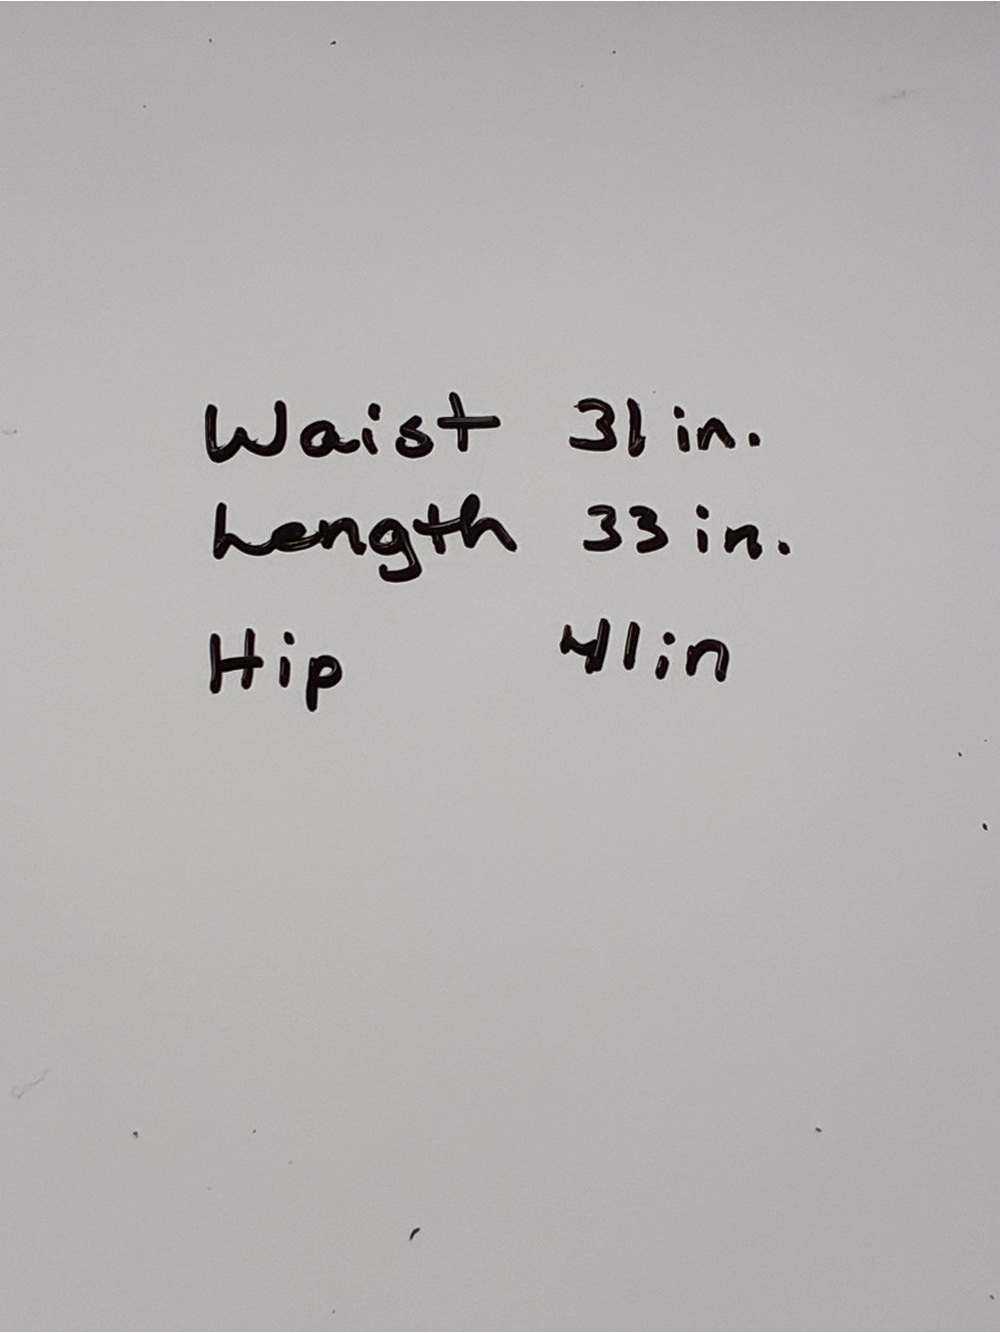 Waist 31 in.
Length 33 in.
Hip 41 in